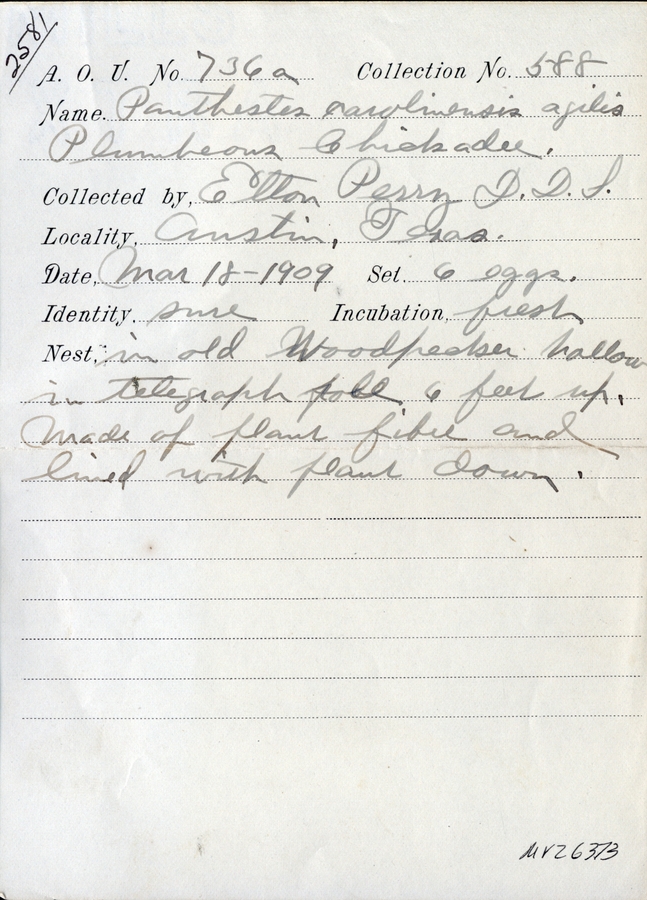 2581
A. O. U. No. 736a Collection No. 588
Name. Panthestes carolinensis agilis
Plumbeous Chickadee.
Collected by, Elton Perry D. D. S.
Locality, Austin, Texas.
Date, Mar 18-1909 Set. 6 eggs.
Identity. sure Incubation, fresh
Nest, in old Woodpecker hallow
in telegraph pole 6 feet up,
Made of plant fibre and
lined with plant down.
MVZ6373